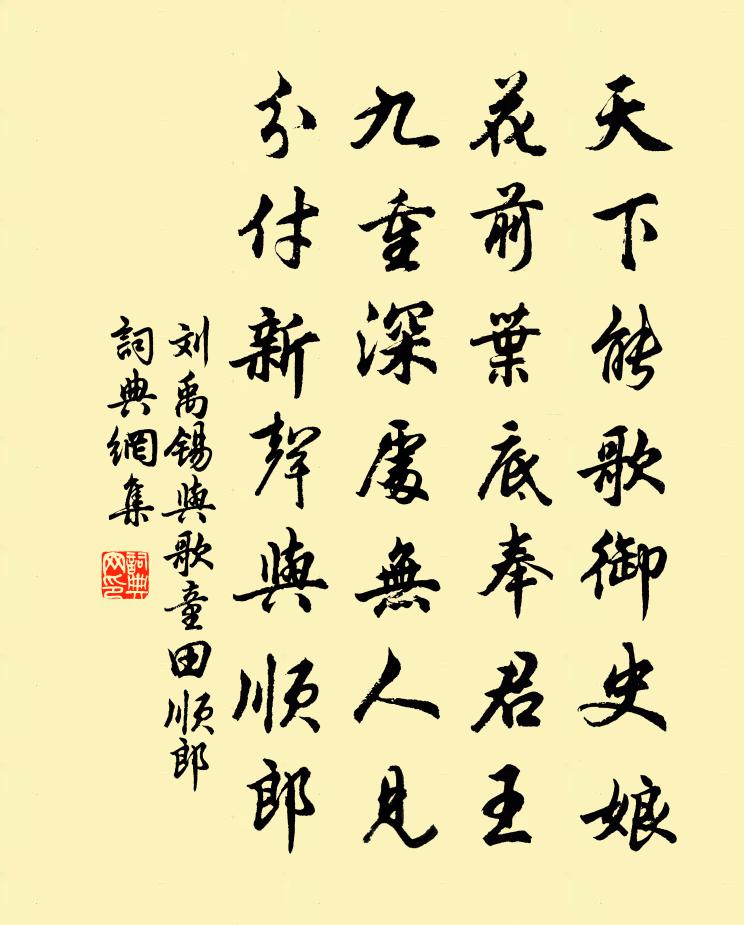 天下能歌御史娘
花前葉底奉君王
九重深處無人見
分付新聲與順郎
刘禹锡與歌童田順郎
詞典網集
詞典網印